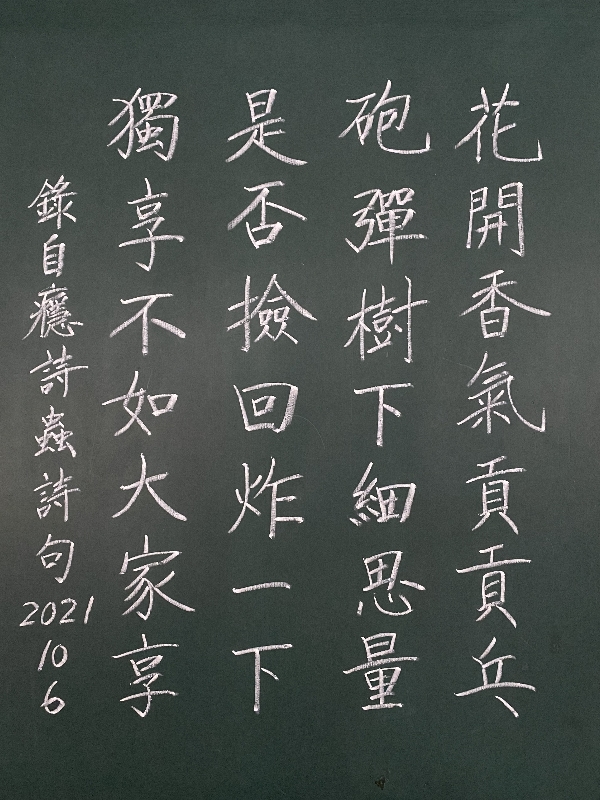 花開香氣貢貢乒
砲彈樹下細思量
是否撿回炸一下
獨享不如大家享
錄自癮詩蟲詩句
2021
10
6